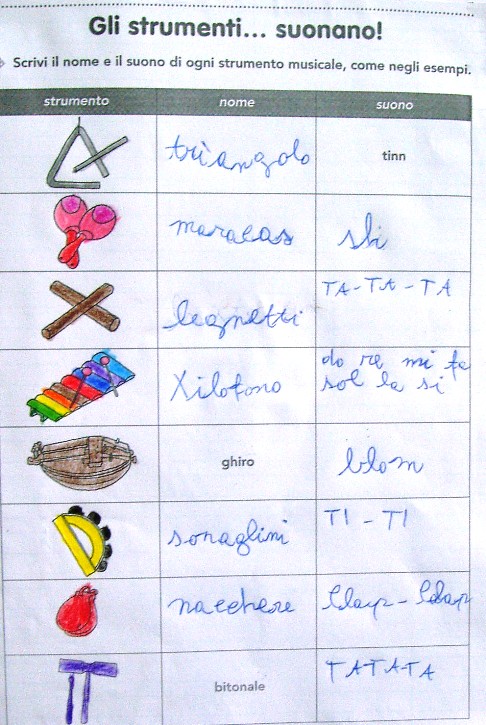 Gli strumenti... suonano!
Scrivi il nome e il suono di ogni strumento musicale, come negli esempi.
strumento nome suono
triangolo tinn
maracas shi
legnetti TA - TA - TA
xilofono do re mi fa
sol la si
ghiro blom
sonaglini TI - TI
nacchere Clap - Clap
bitonale TATATA